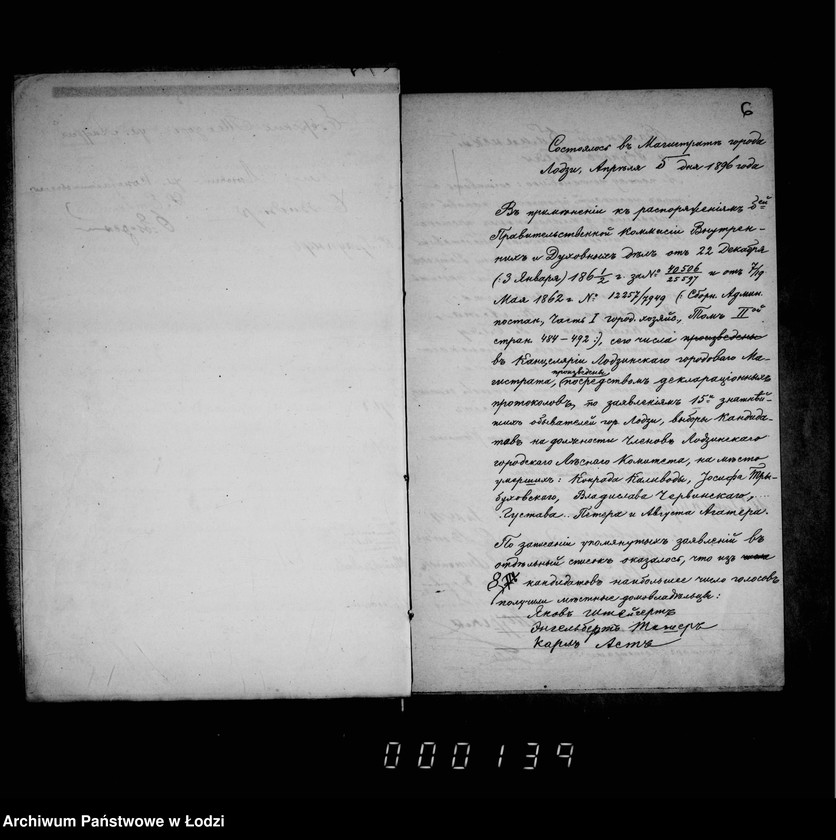 6
Состоялось въ Магистратѣ города
Лодзи, Апрѣля 5 дня 1896 года
Въ примѣненіи къ распоряженіямъ б.ей
Правительственной Коммисіи Внутрен-
нихъ и Духовныхъ дѣлъ отъ 22 Декабря
(:3 Января) 186 1/2 г. за № 40506/25597 и отъ 7/19
Мая 1862 г. № 12257/7949 (: Сборн. Админ.
постан., Часть I город. хозяйс., Томъ II ой
стран. 484-492:), сего числа произведены
въ Канцеляріи Лодзинскаго городоваго Ма-
произведены
гистрата, посредствомъ деклараціонныхъ
протоколовъ, по заявленіямъ 15 и знатнѣй-
шихъ обывателей гор. Лодзи, выборы Кандида-
товъ на должности Членовъ Лодзинскаго
городскаго Лѣснаго Комитета, на мѣсто
умершихъ: Конрада Каливоды, Іосифа Тры-
буховскаго, Владислава Червинскаго,
Густава Петера и Августа Агатера.
По записаніи упомянутыхъ заявленій въ
отдѣльный списокъ оказалось, что изъ
8 кандидатовъ наибольшее число голосовъ
получили мѣстные домовладѣльцы:
Яковъ Штейгертъ
Энгельбертъ
Карлъ Астъ
000139
Archiwum Państwowe w Łodzi